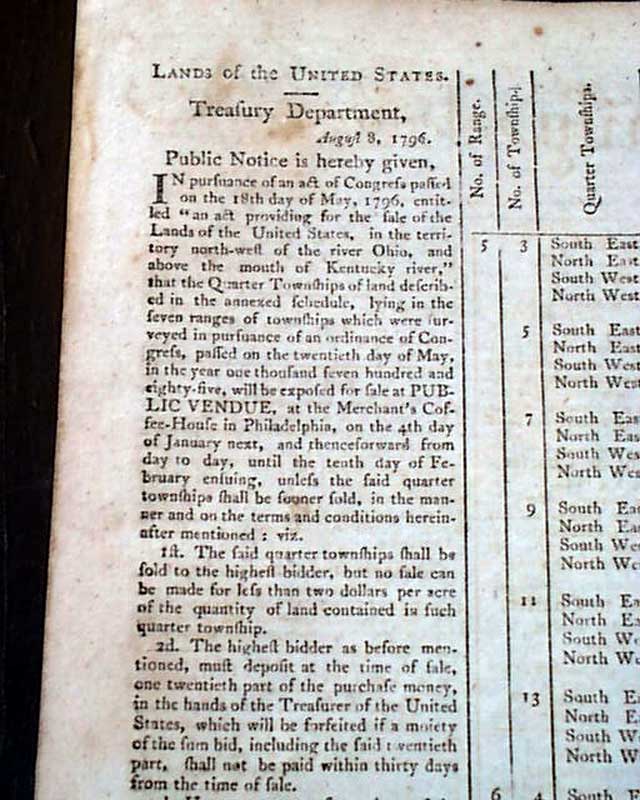 LANDS of the UNITED STATES.
Treaſury Department,
Auguſt 8, 1796.
Public Notice is hereby given,
IN purſuance of an act of Congreſs paſſed
on the 18th day of May, 1796, entit-
led "an act providing for the ſale of the
Lands of the United States, in the terri-
tory north-weſt of the river Ohio, and
above the mouth of Kentucky river,"
that the Quarter Townſhips of land deſcrib-
ed in the annexed ſchedule, lying in the
ſeven ranges of townſhips which were ſur-
veyed in purſuance of an ordinance of Con-
greſs, paſſed on the twentieth day of May,
in the year one thouſand ſeven hundred and
eighty-five, will be expoſed for ſale at PUB-
LIC VENDUE, at the Merchant's Cof-
fee-Houſe in Philadelphia, on the 4th day
of January next, and thenceforward from
day to day, until the tenth day of Fe-
bruary enſuing, unleſs the ſaid quarter
townſhips ſhall be ſooner ſold, in the man-
ner and on the terms and conditions herein-
after mentioned : viz.
1ſt. The ſaid quarter townſhips ſhall be
ſold to the higheſt bidder, but no ſale can
be made for leſs than two dollars per acre
of the quantity of land contained in ſuch
quarter townſhip.
2d. The higheſt bidder as before men-
tioned, muſt depoſit at the time of ſale,
one twentieth part of the purchaſe money,
in the hands of the Treaſurer of the United
States, which will be forfeited if a moiety
of the ſum bid, including the ſaid twentieth
part, ſhall not be paid within thirty days
from the time of ſale.
No. of Range.
No. of Townſhip.
Quarter Townſhips.
5 3 South East
North East
South West
North West
5 South East
North East
South West
North West
7 South Eas
North East
South Wes
North West
9 South Eas
North East
South We
North We
11 South Ea
North E
South W
North W
13 South E
North E
South W
North W
6 4 South E